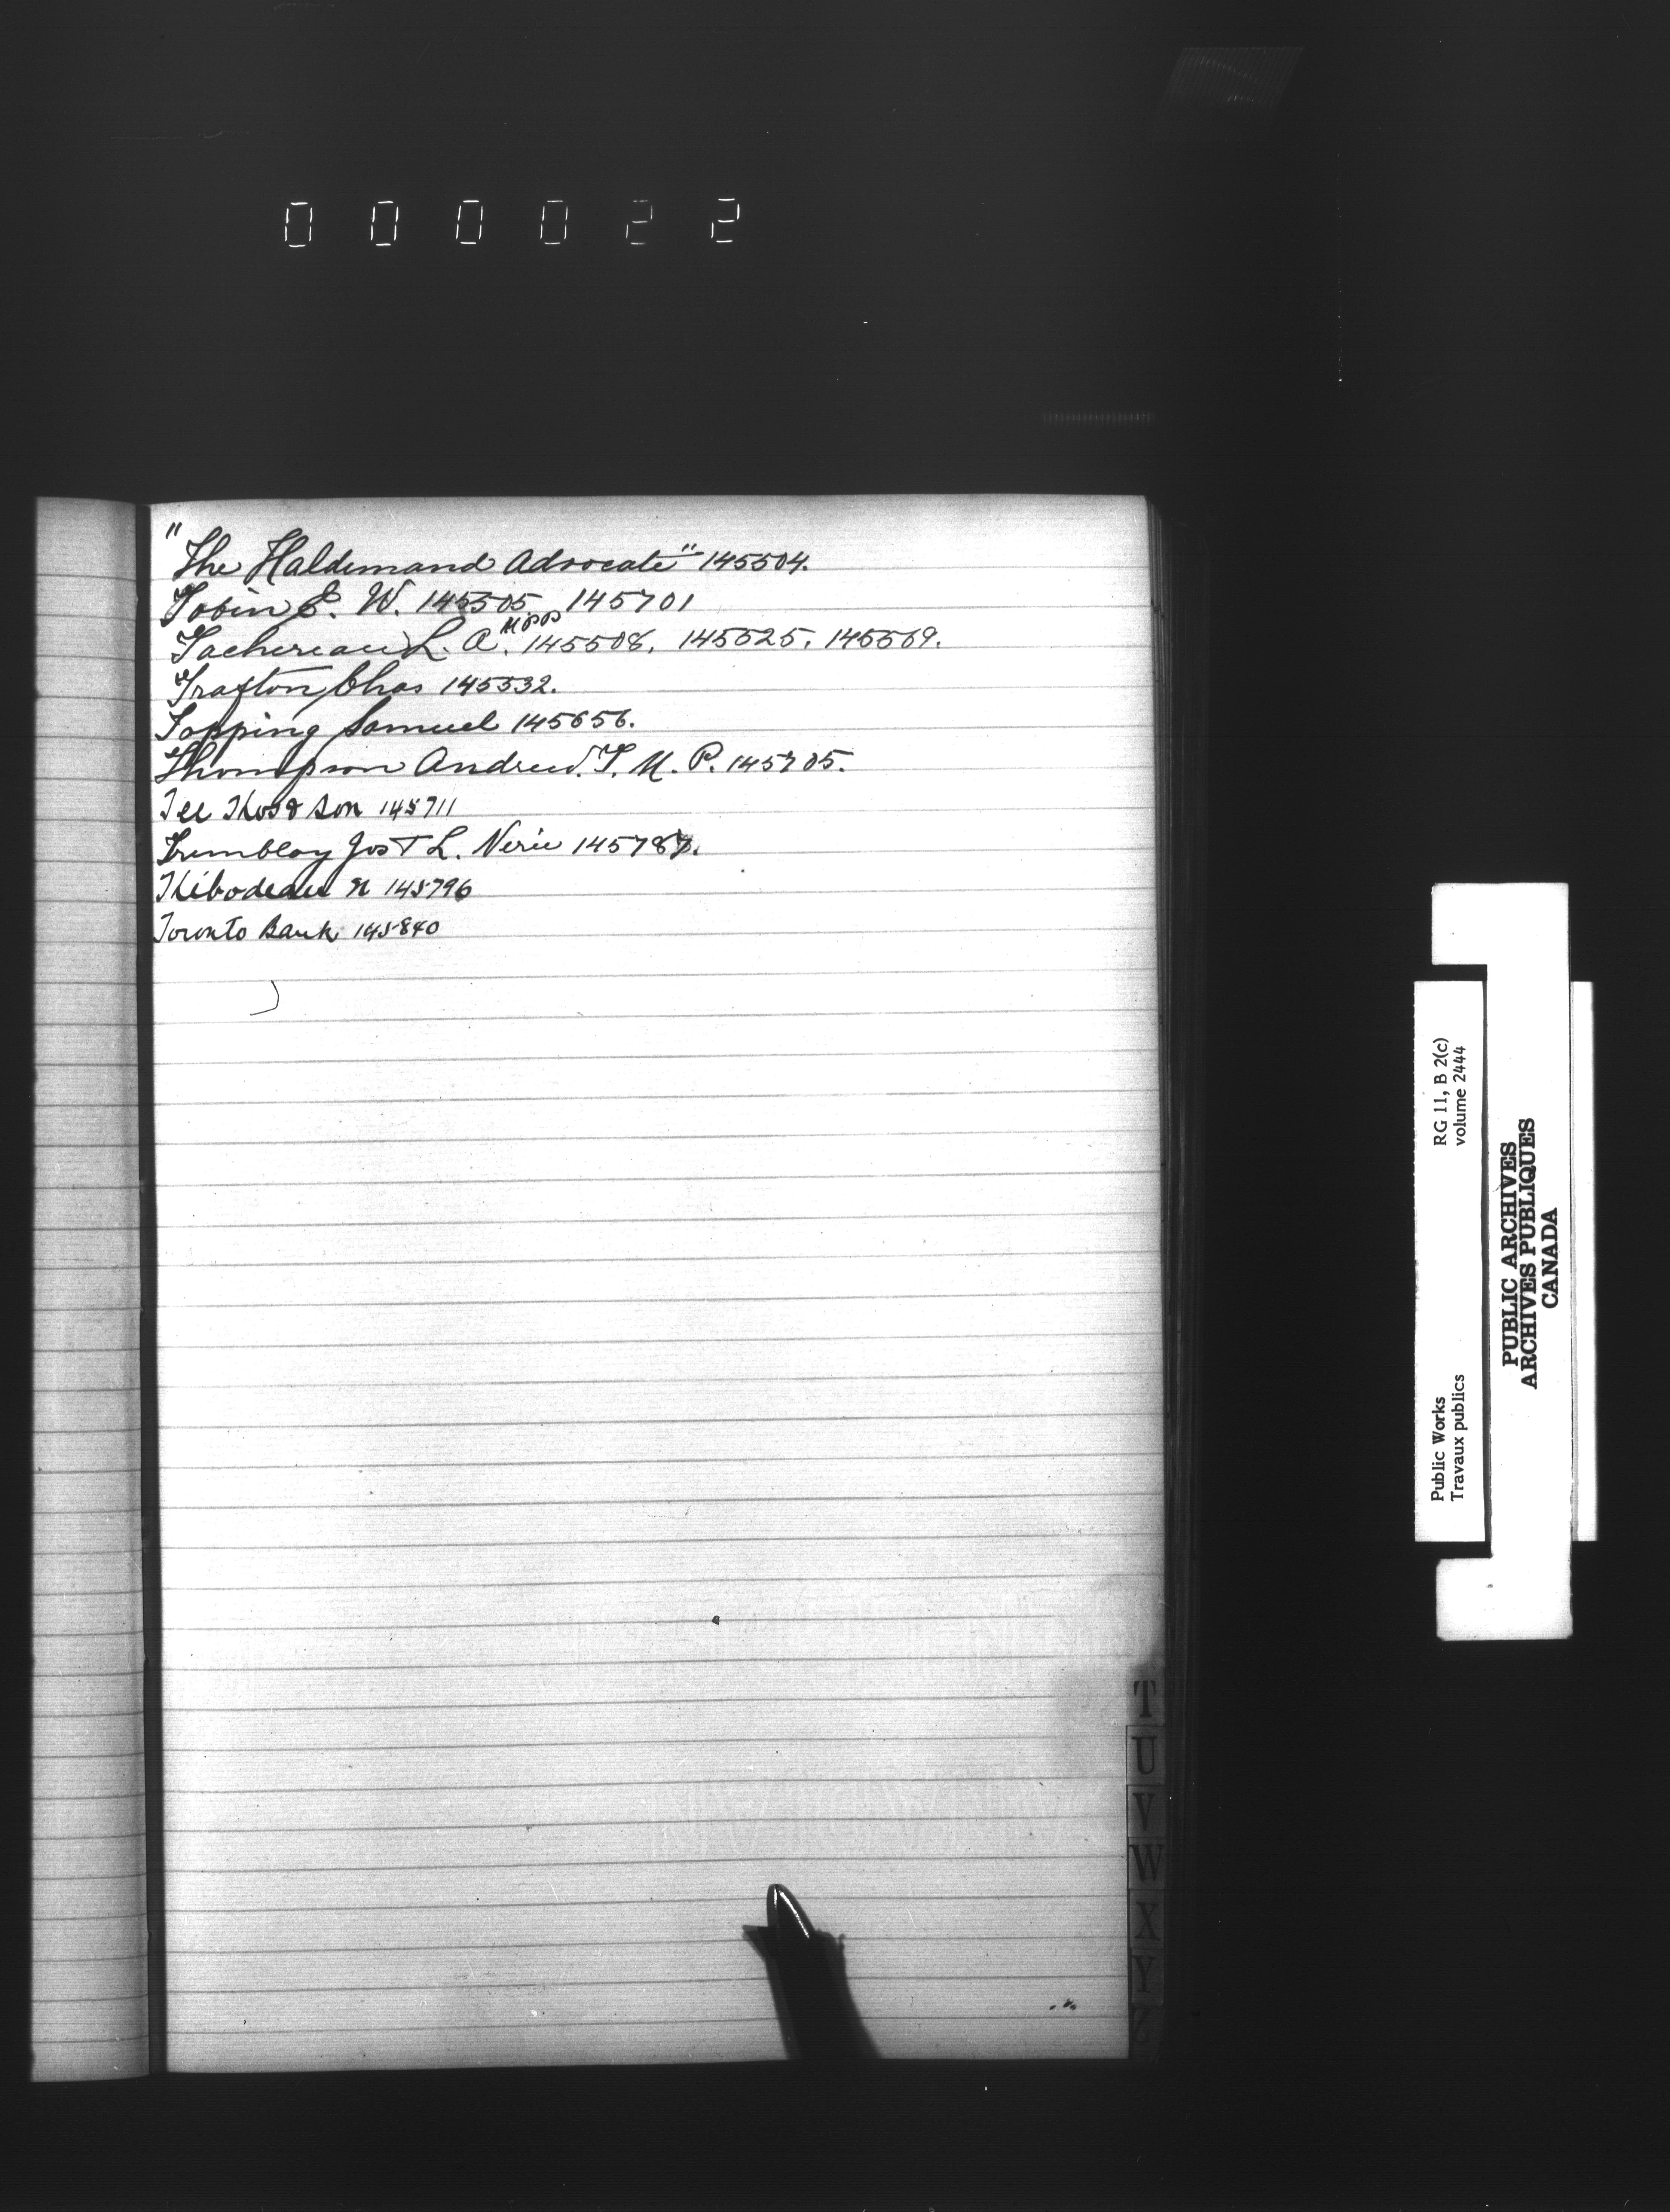 000022
"The Haldimand Advocate" 145504.
Tobin E. W. 145505, 145701
Tachereau L. A. MPP 145508, 145525, 145569.
Trafton Chas 145532.
Topping Samuel 145656.
Thompson Andrew. T. M. P. 145705.
Tee Thos & Son 145711
Tremblay Jos T L. 145787.
Thibodeau N 145796
Toronto Bank 145840
T
U
V
W
X
Y
Z
Public Works
Travaux publics
RG 11, B 2(c)
volume 2444
PUBLIC ARCHIVES
ARCHIVES PUBLIQUES
CANADA